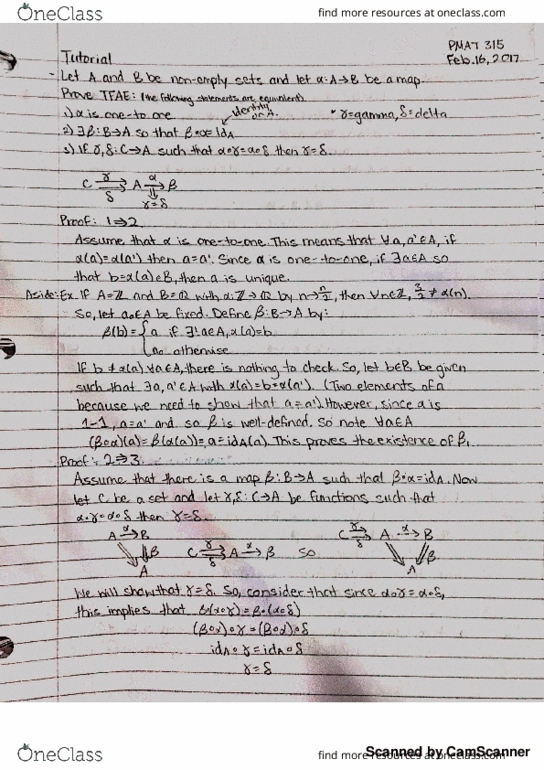 OneClass
find more resources at oneclass.com
PMAT 315
Feb. 16, 2017
Tutorial
- Let A and B be non-empty sets and let α: A→B be a map.
Prove TFAE: (the following statements are equivalent)
identity on A.
1) α is one-to one
* γ=gamma, δ=delta
2) ∃β: B→A so that β∘α=idA
3) If γ,δ: C→A such that α∘γ=α∘δ then γ=δ.
C γ⇉δ A α→ B
γ=δ
Proof: 1⇒2
Assume that α is one-to-one. This means that ∀a,a'∈A, if
α(a)=α(a') then a=a'. Since α is one-to-one, if ∃a∈A so
that b=α(a)∈B, then a is unique.
Aside: Ex. If A=ℤ and B=ℚ with α: ℤ→ℚ by n→n/2, then ∀n∈ℤ, 3/2≠α(n).
So, let a₀∈A be fixed. Define β: B→A by:
β(b)={ a if ∃!a∈A, α(a)=b
a₀ otherwise
If b≠α(a) ∀a∈A, there is nothing to check. So, let b∈B, be given
such that ∃a,a'∈A with α(a)=b=α(a'). (Two elements of a
because we need to show that a=a'). However, since α is
1-1, a=a' and so β is well-defined. So note ∀a∈A
(β∘α)(a)=β(α(a))=a=idA(a). This proves the existence of β.
Proof: 2⇒3
Assume that there is a map β: B→A such that β∘α=idA. Now
let C be a set and let γ,δ: C→A be functions such that
α∘γ=α∘δ then γ=δ.
A α→ B C γ⇉δ A α→ B so C γ⇉δ A α→ B
β β
A A
We will show that γ=δ. So, consider that since α∘γ=α∘δ,
this implies that β∘(α∘γ)=β∘(α∘δ)
(β∘α)∘γ=(β∘α)∘δ
idA∘γ=idA∘δ
γ=δ
Scanned by CamScanner
OneClass
find more resources at oneclass.com